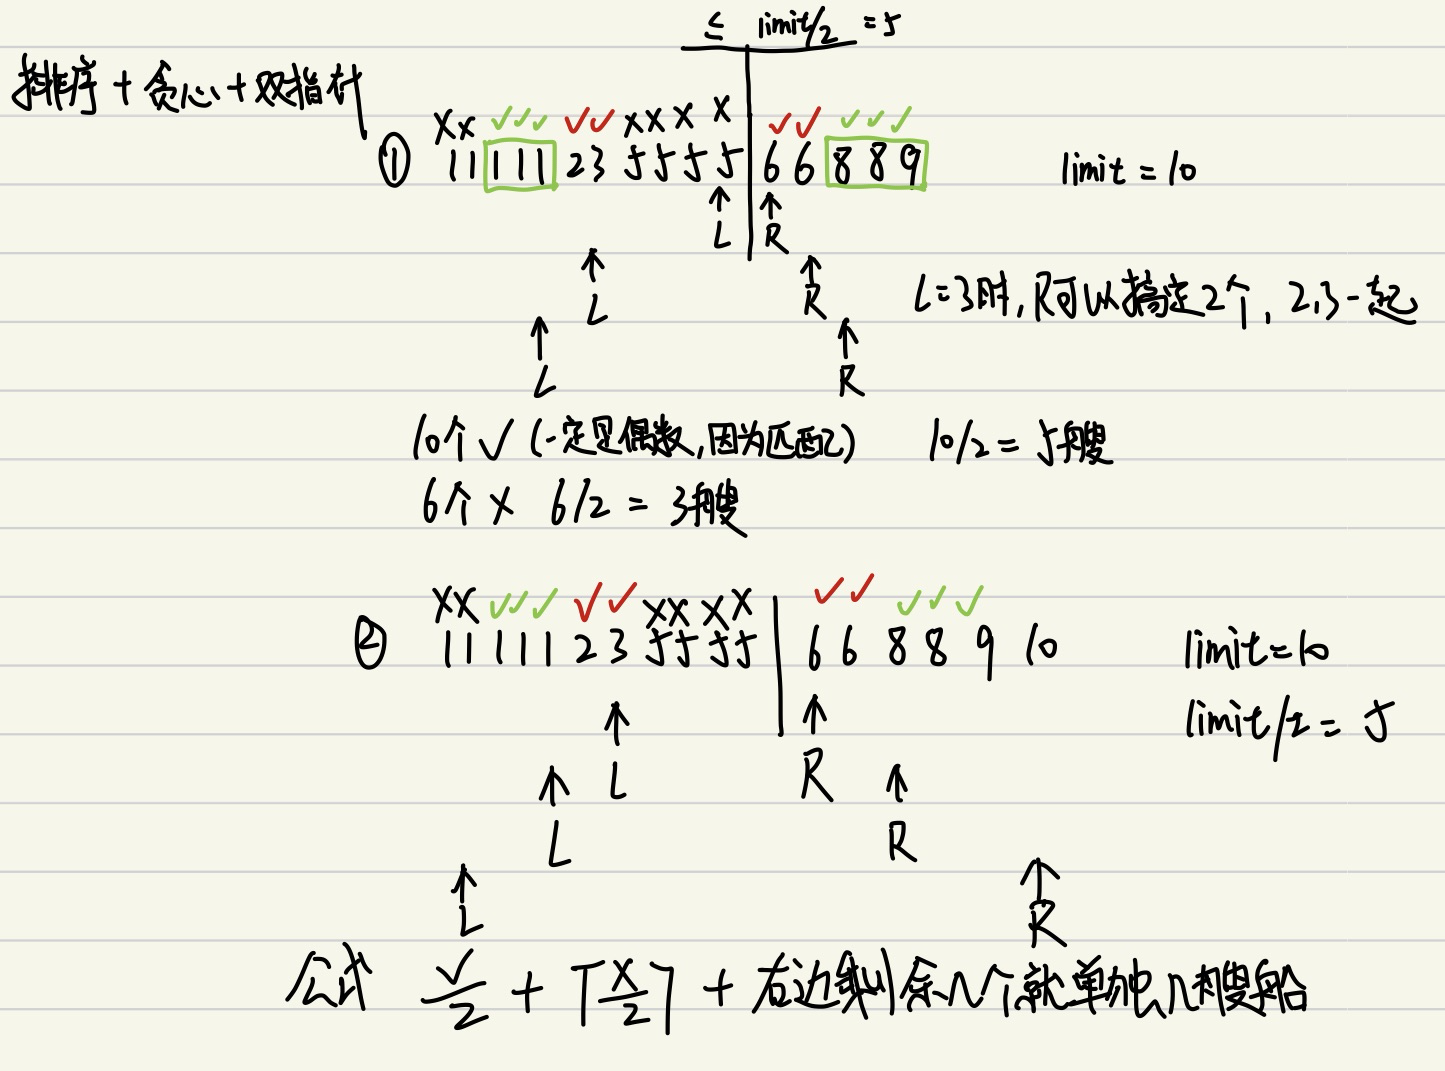 ≤ limit/2 = 5
排序 + 贪心 + 双指针
X X ✓ ✓ ✓ ✓ ✓ X X X X ✓ ✓ ✓ ✓ ✓
① 1 1 1 1 1 2 3 5 5 5 5 6 6 8 8 9 limit = 10
↑ ↑
L R
↑ ↑
L R L=3时, R可以搞定2个, 2,3一起
↑ ↑
L R
10个 ✓ (一定是偶数, 因为匹配) 10/2 = 5艘
6个 X 6/2 = 3艘
X X ✓ ✓ ✓ ✓ ✓ X X X X ✓ ✓ ✓ ✓ ✓
② 1 1 1 1 1 2 3 5 5 5 5 6 6 8 8 9 10 limit=10
limit/2 = 5
↑ ↑
L R
↑ ↑
L R
↑ ↑
L R
公式 ✓/2 + ⌈X/2⌉ + 右边剩余几个就单独几艘船